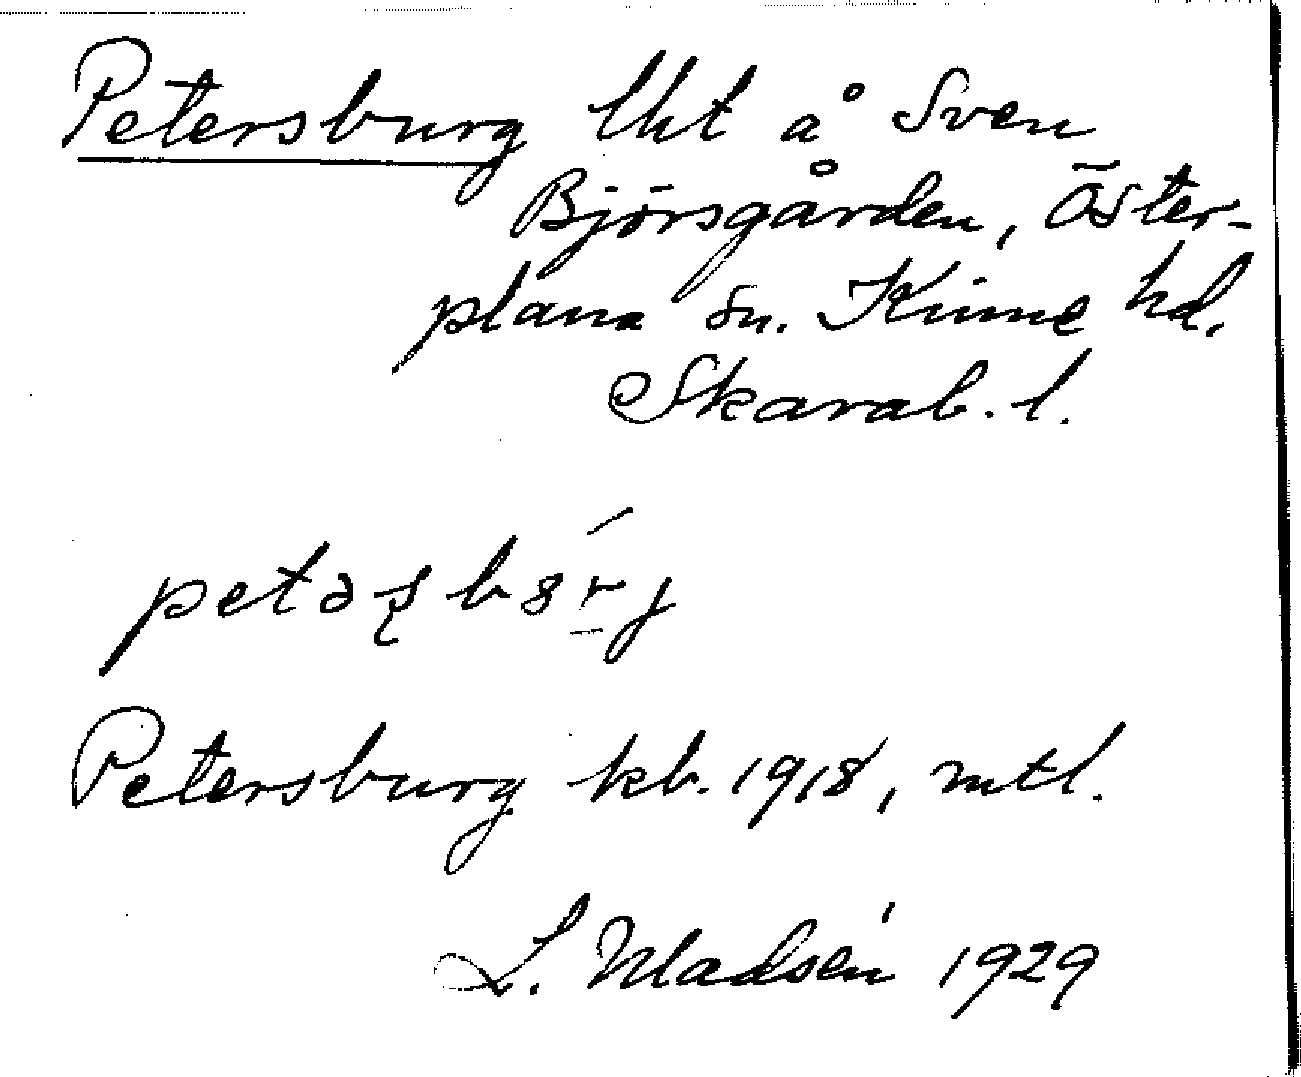 Petersburg lht å Sven
Björsgården, Öster-
plana sn. Kinne hd.
Skarab. l.
petəʂbś̱rj
Petersburg kb. 1918, mtl.
L. Madsén 1929